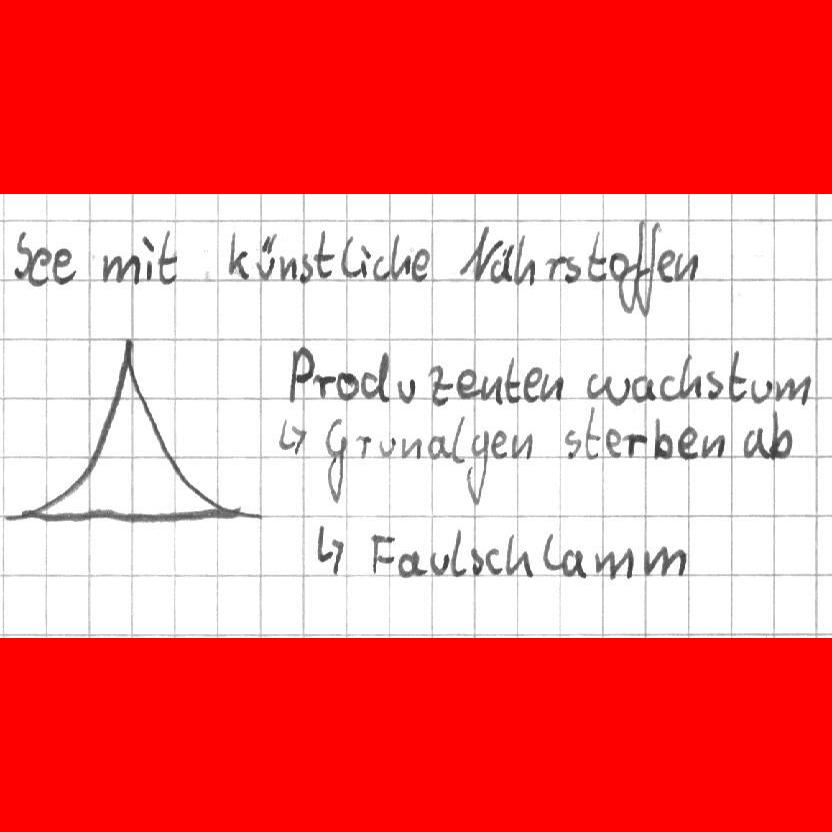 See mit künstliche Nährstoffen
Produzenten wachstum
↳ Grunalgen sterben ab
↳ Faulschlamm